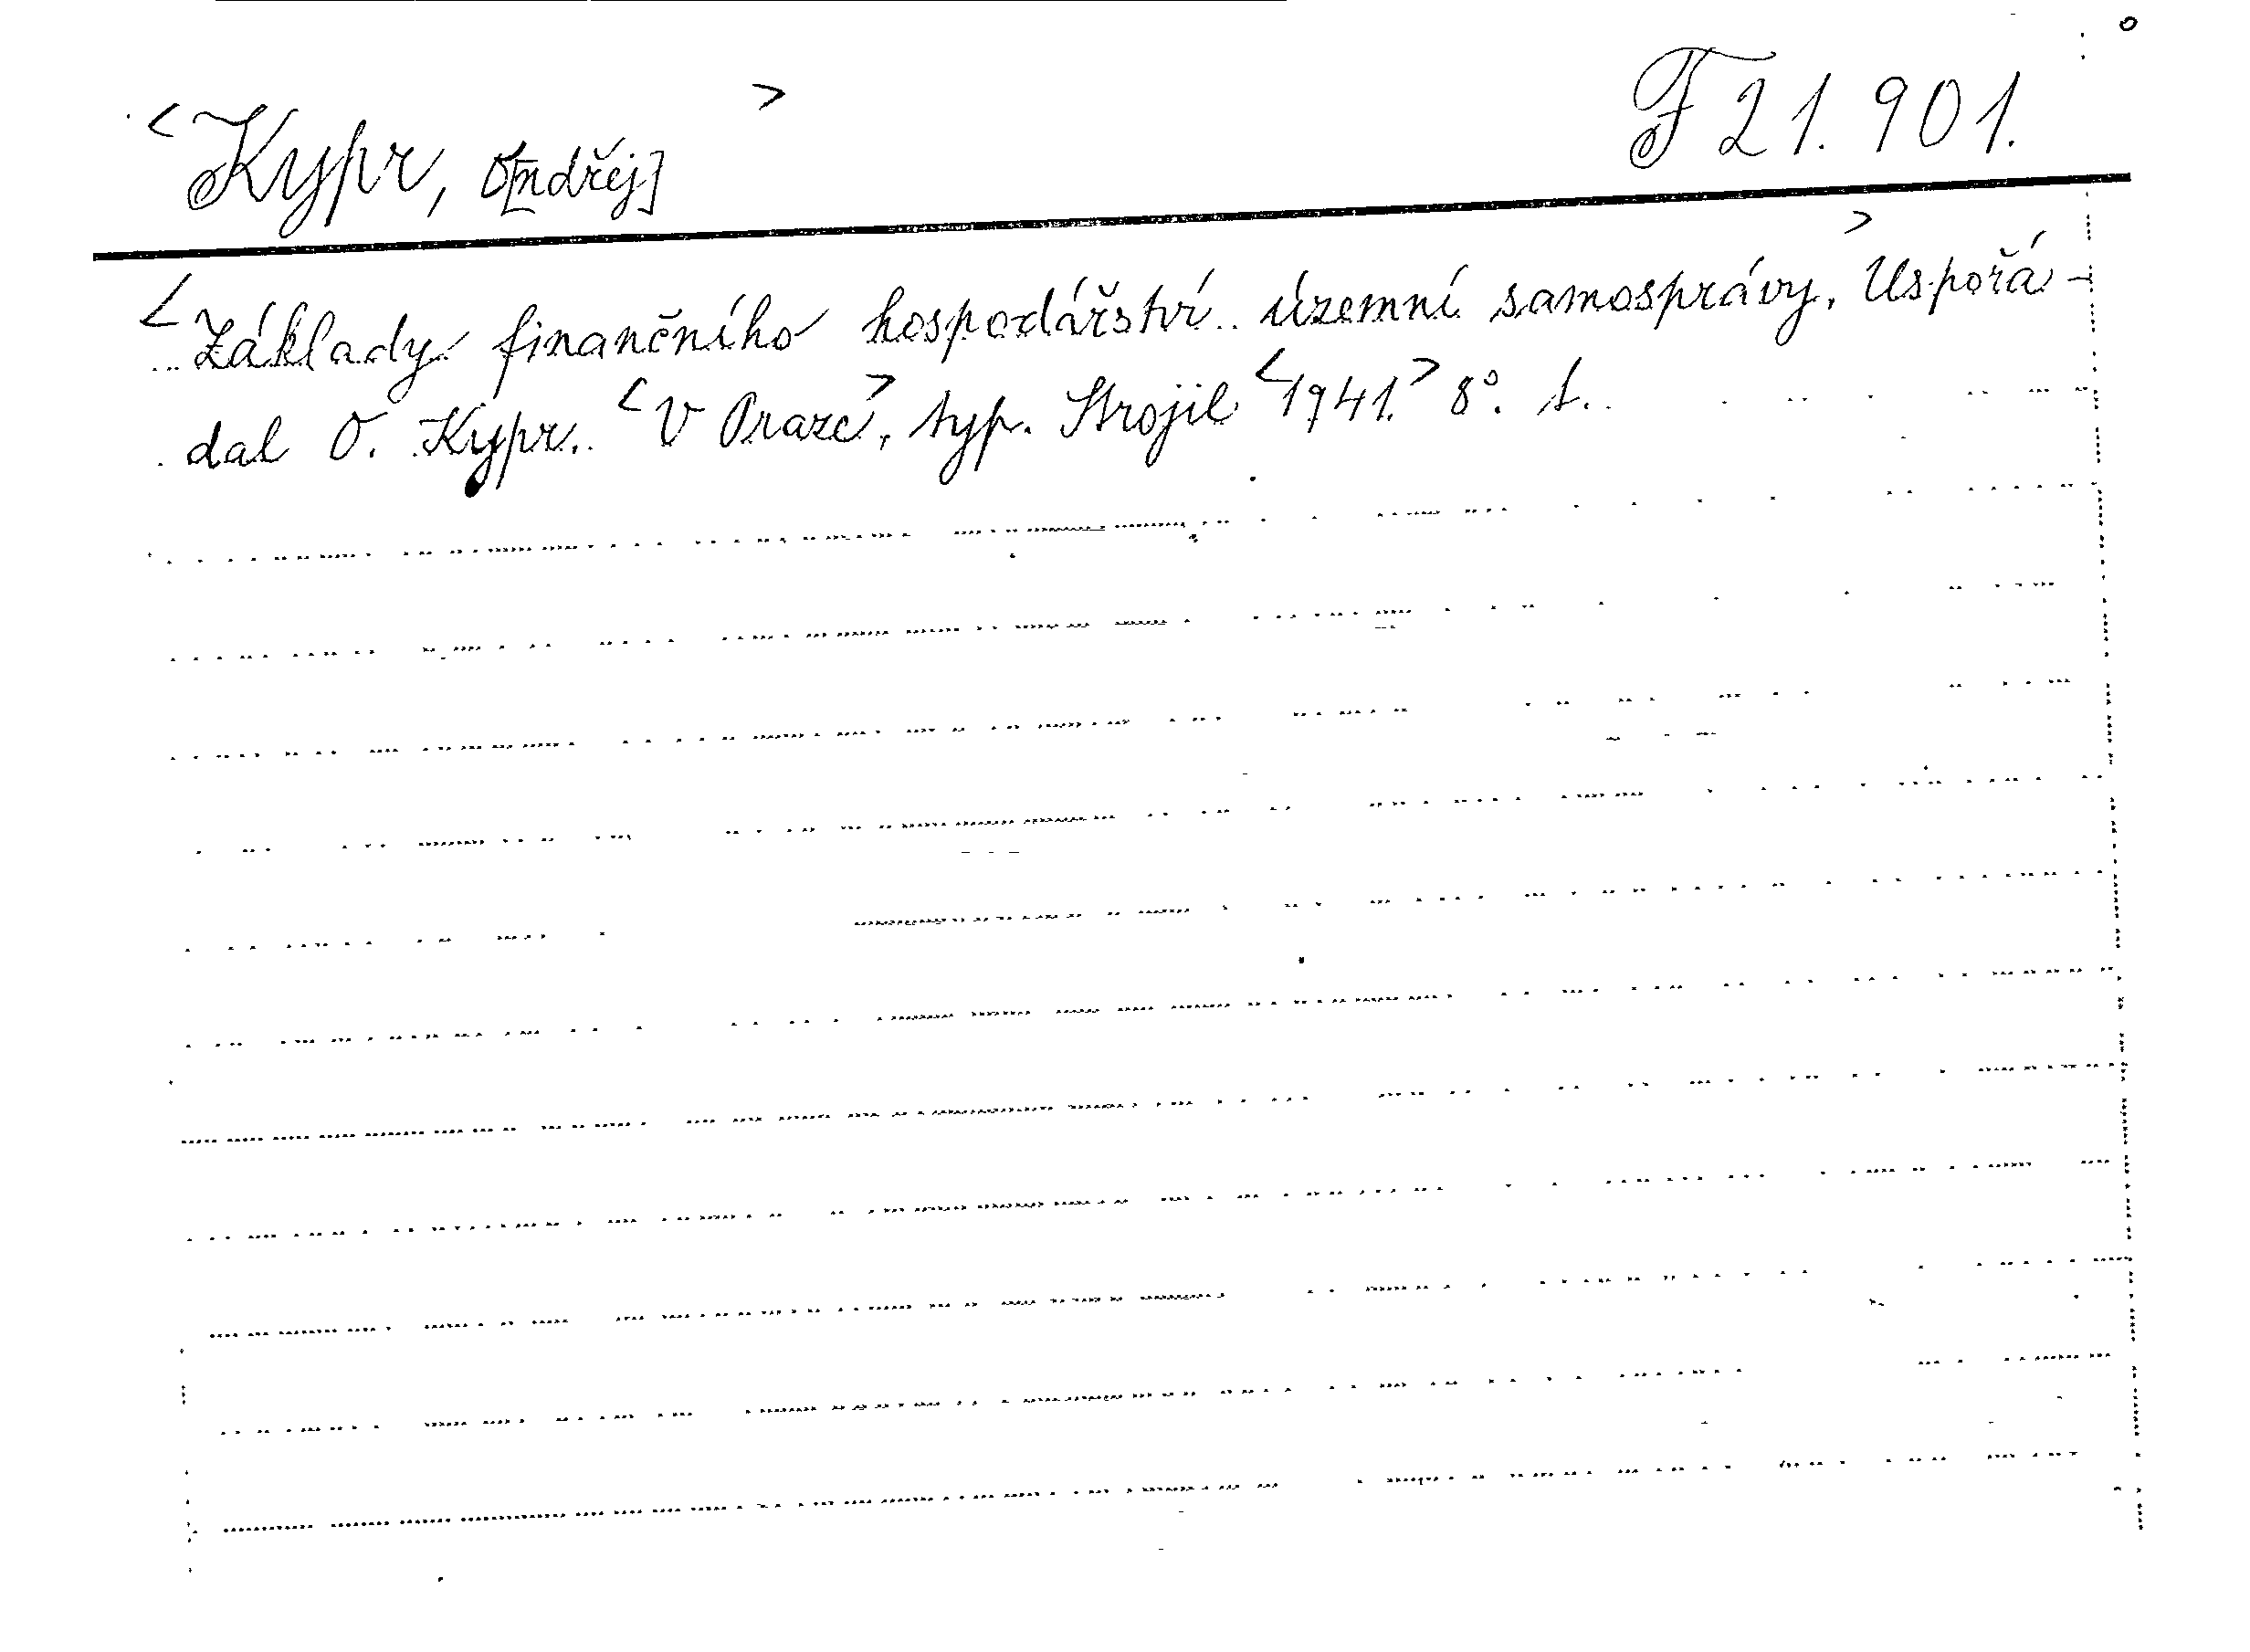 <Kypr, O[ndřej]> F 21.901.
<Základy finančního hospodářství územní samosprávy.> Uspořá-
dal O. Kypr. <V Praze>, typ. Strojil <1941.> 8°. 1.